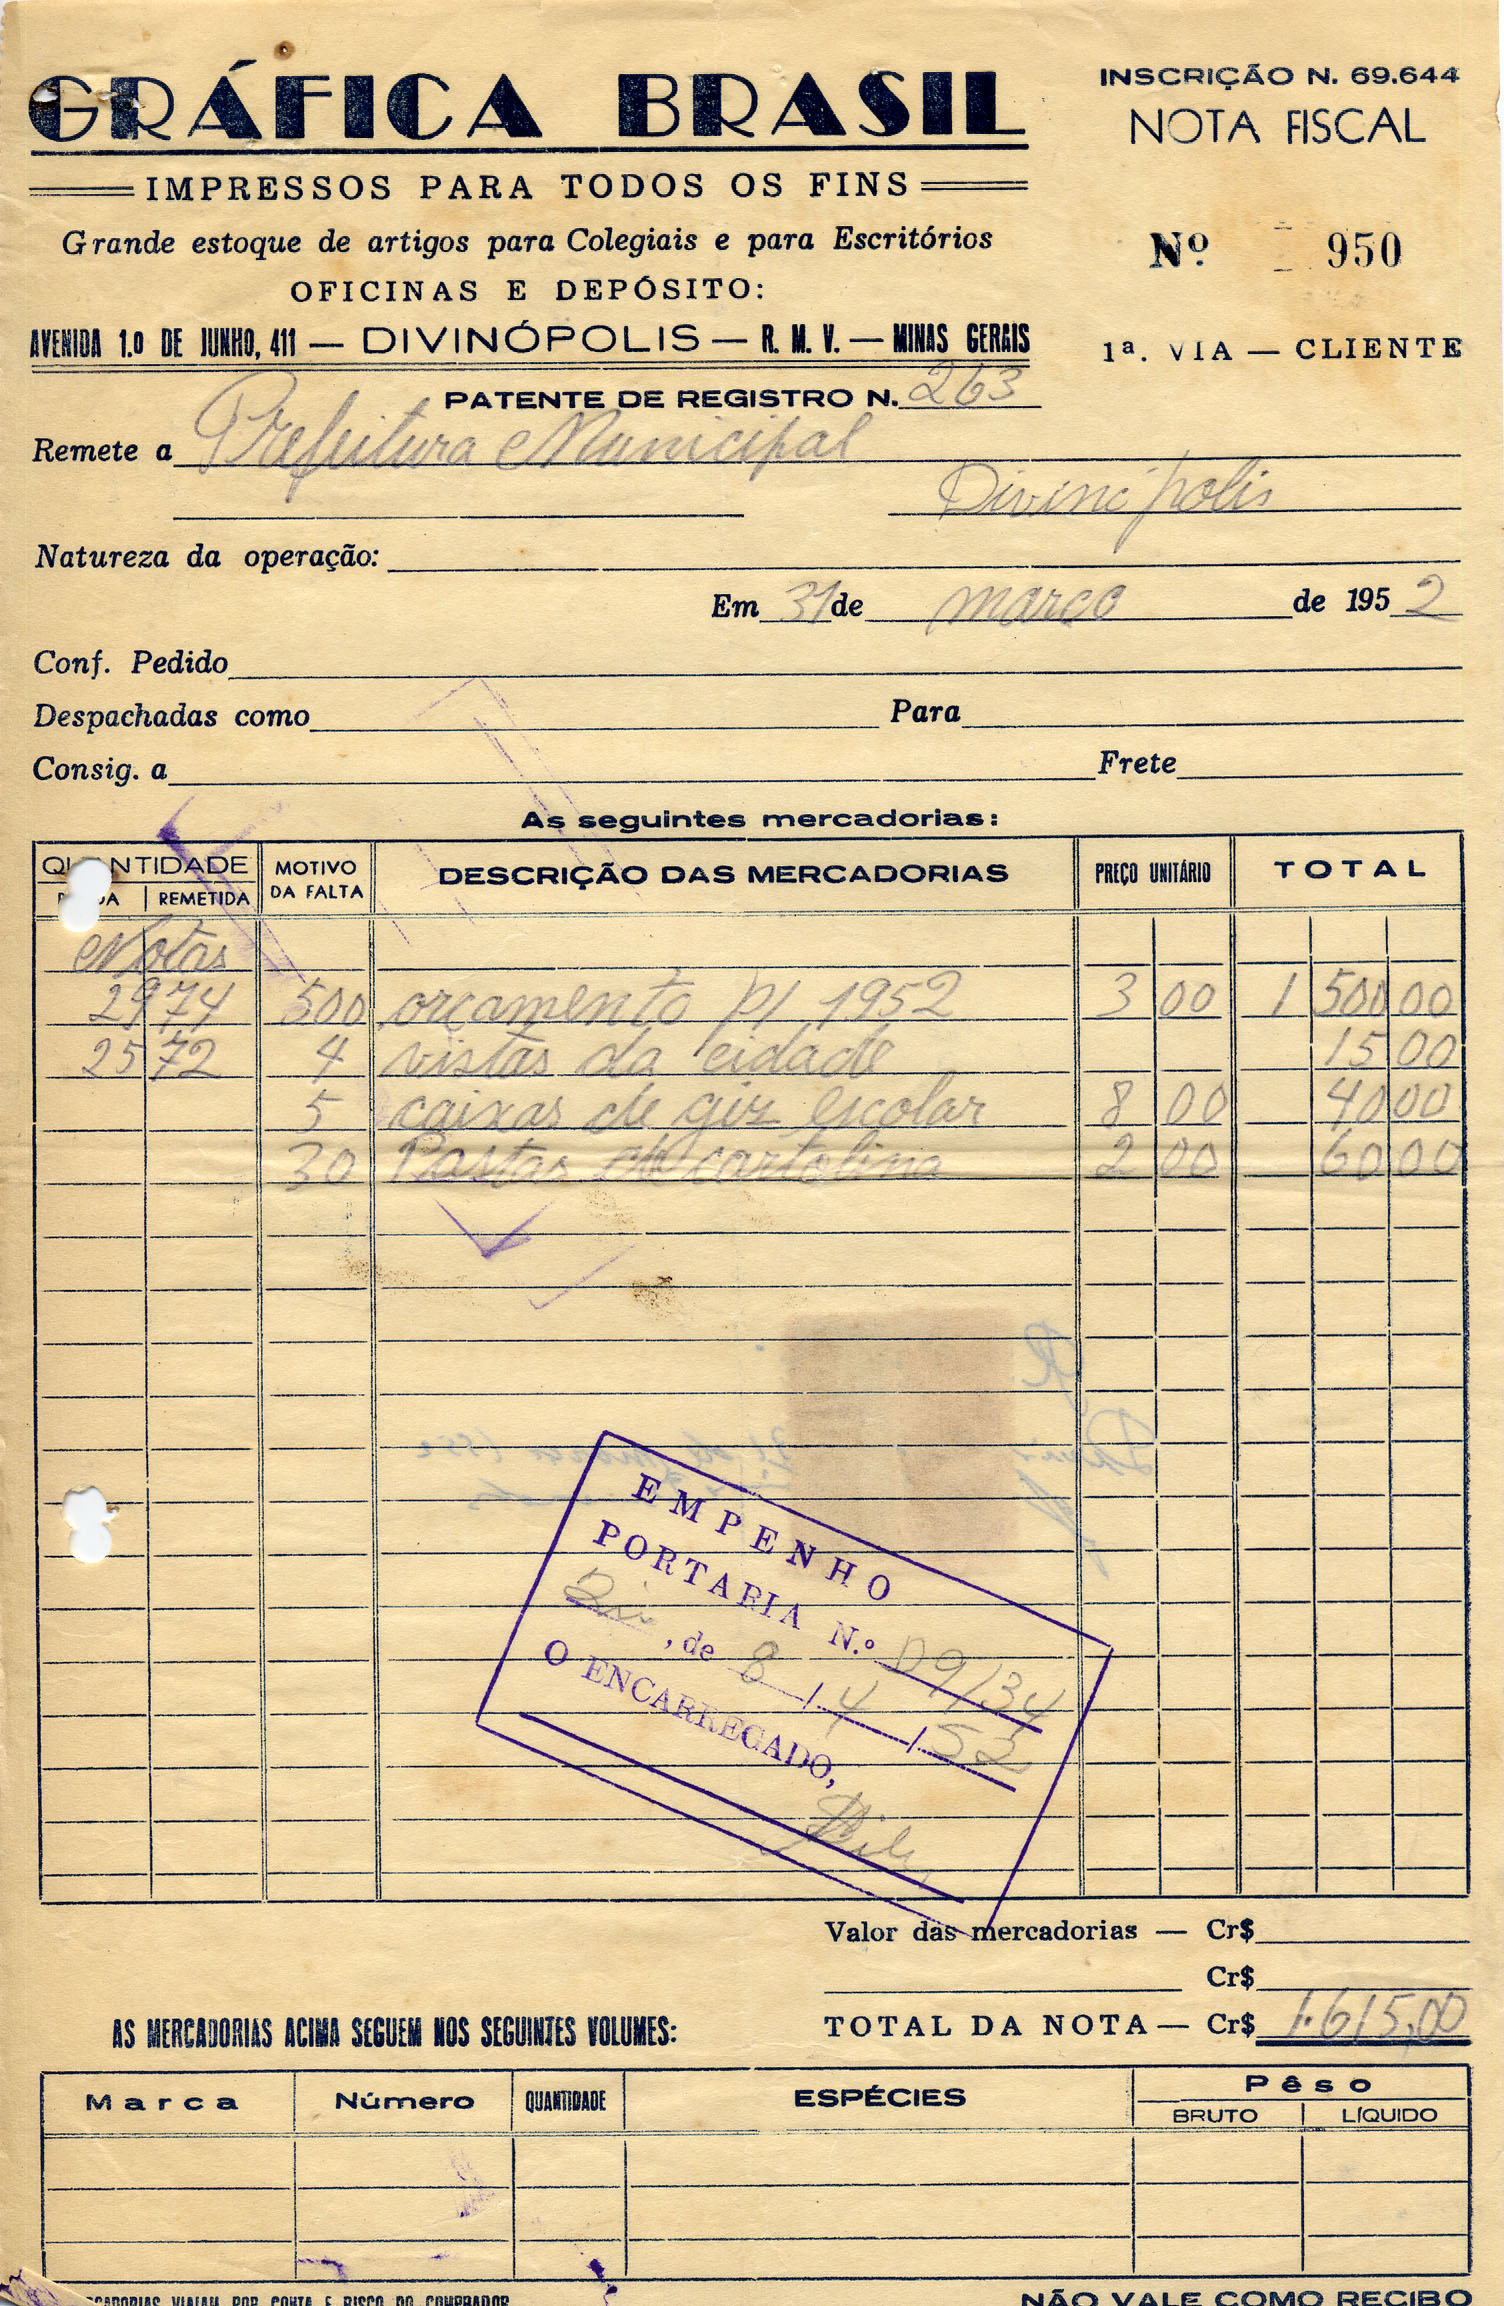 GRÁFICA BRASIL
INSCRIÇÃO N. 69.644
NOTA FISCAL
IMPRESSOS PARA TODOS OS FINS
Grande estoque de artigos para Colegiais e para Escritórios
Nº 950
OFICINAS E DEPÓSITO:
AVENIDA 1.o DE JUNHO, 411 — DIVINÓPOLIS — R. M. V. — MINAS GERAIS
1ª. VIA — CLIENTE
PATENTE DE REGISTRO N. 263
Remete a Prefeitura Municipal
Divinópolis
Natureza da operação:
Em 31 de março de 1952
Conf. Pedido
Despachadas como Para
Consig. a Frete
As seguintes mercadorias:
QUANTIDADE MOTIVO DA FALTA DESCRIÇÃO DAS MERCADORIAS PREÇO UNITÁRIO TOTAL
REMETIDA
Notas
2974 500 orçamento p/ 1952 3 00 1 500 00
2572 4 vistas da cidade 15 00
5 caixas de giz escolar 8 00 40 00
30 Pastas de cartolina 2 00 60 00
EMPENHO
PORTARIA N.º D9/34
Div , de 8 / 4 / 52
O ENCARREGADO,
Valor das mercadorias — Cr$
Cr$
TOTAL DA NOTA — Cr$ 1.615,00
AS MERCADORIAS ACIMA SEGUEM NOS SEGUINTES VOLUMES:
Marca Número QUANTIDADE ESPÉCIES Pêso
BRUTO LÍQUIDO
VIAJAM POR CONTA E RISCO DO COMPRADOR
NÃO VALE COMO RECIBO